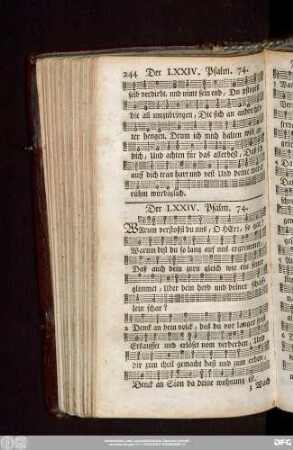 244 Der LXXIV. Psalm. 74.
selb verdirbt, und nimt sein end, Du pflegst
die all umzubringen, Die sich an andre göt-
ter hengen. Drum ich mich halten will an
dich, Und achten für das allerbest, Daß ich
auff dich trau hart und vest Und deine werck
rühm würdiglich.
Der LXXIV. Psalm. 74.
WArum verstößt du uns, O HErr, so gar?
Warum bist du so lang auf uns ergrimmet,
Daß auch dein zorn gleich wie ein feuer
glimmet, Uber dein herd und deiner schäf-
lein schar?
2 Denck an dein volck, das du vor langer
Erkauffet und erlöset vom verderben, Und
die zum theil gemacht hast und zum erben,
Denck an Sion da deine wohnung ist.
3 Mach